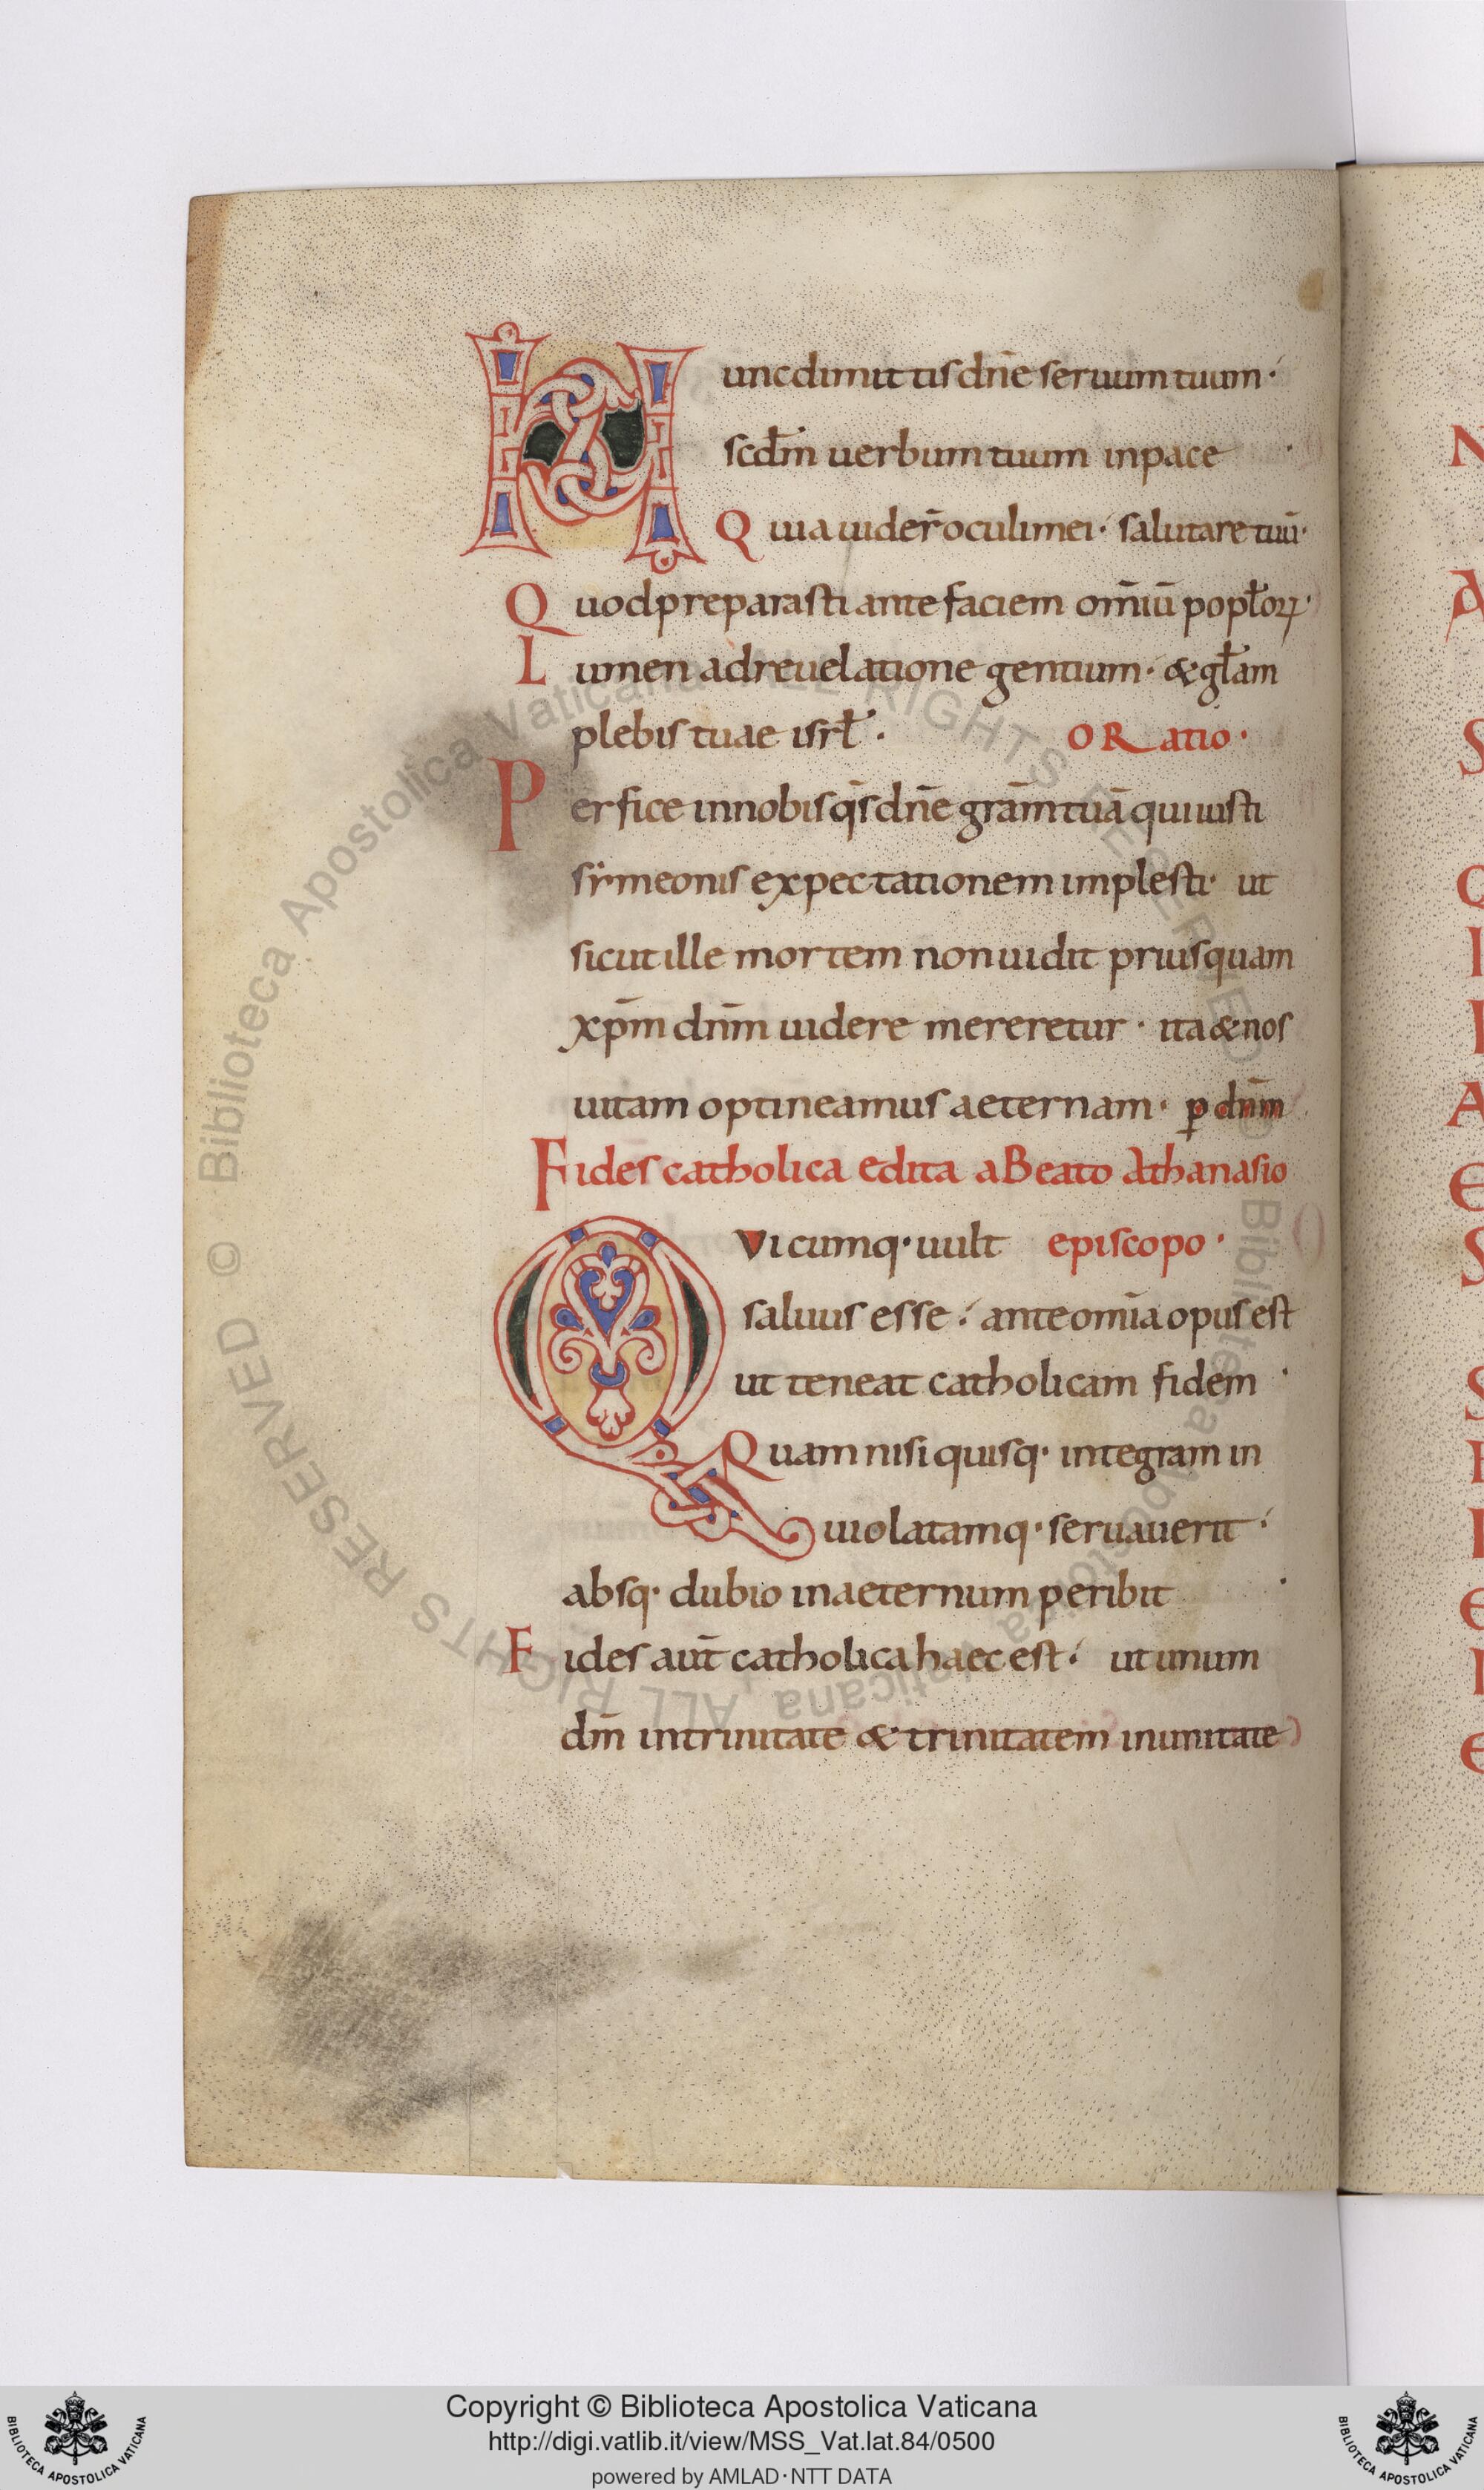 Nunc dimittis dn̄e seruum tuum·
scd̄m uerbum tuum in pace ·
Quia uider̄ oculi mei· salutare tuū·
Quod preparasti ante faciem om̄iū popl̄oꝝ·
Lumen ad reuelatione gentium· & gl̄am
plebis tuae isrl̄ · ORatio·
Perfice in nobis q̄s dn̄e grām tuā qui iusti
sẏmeonis expectationem implesti· ut
sicut ille mortem non uidit priusquam
xp̄m dn̄m uidere mereretur· ita & nos
uitam optineamus aeternam· ꝑ dn̄m
Fides catholica edita a Beato Athanasio
QVicumq· uult episcopo·
saluus esse· ante om̄ia opus est
ut teneat catholicam fidem ·
Quam nisi quisq· integram in
uiolatamq· seruauerit·
absq· dubio in aeternum peribit ·
Fides aut̄ catholica haec est· ut unum
dm̄ in trinitate & trinitatem in unitate
© Biblioteca Apostolica Vaticana ALL RIGHTS RESERVED © Biblioteca Apostolica Vaticana ALL RIGHTS RESERVED
N
A
S
Q
I
I
A
E
S
S
E
I
E
I
E
Copyright © Biblioteca Apostolica Vaticana
http://digi.vatlib.it/view/MSS_Vat.lat.84/0500
powered by AMLAD·NTT DATA
BIBLIOTECA APOSTOLICA VATICANA
BIBLIOTECA APOSTOLICA VATICANA